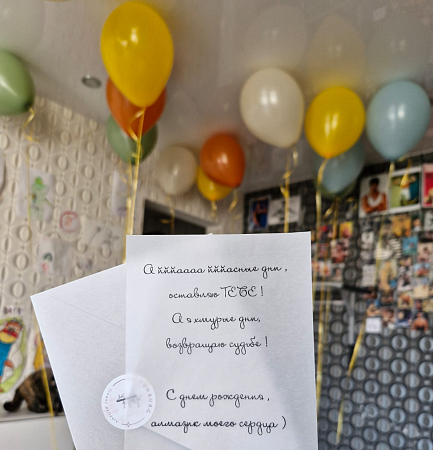 А йййаааа йййасные дни,
оставляю ТЕБЕ!
А я хмурые дни,
возвращаю судьбе!
С днем рождения,
алмазик моего сердца)